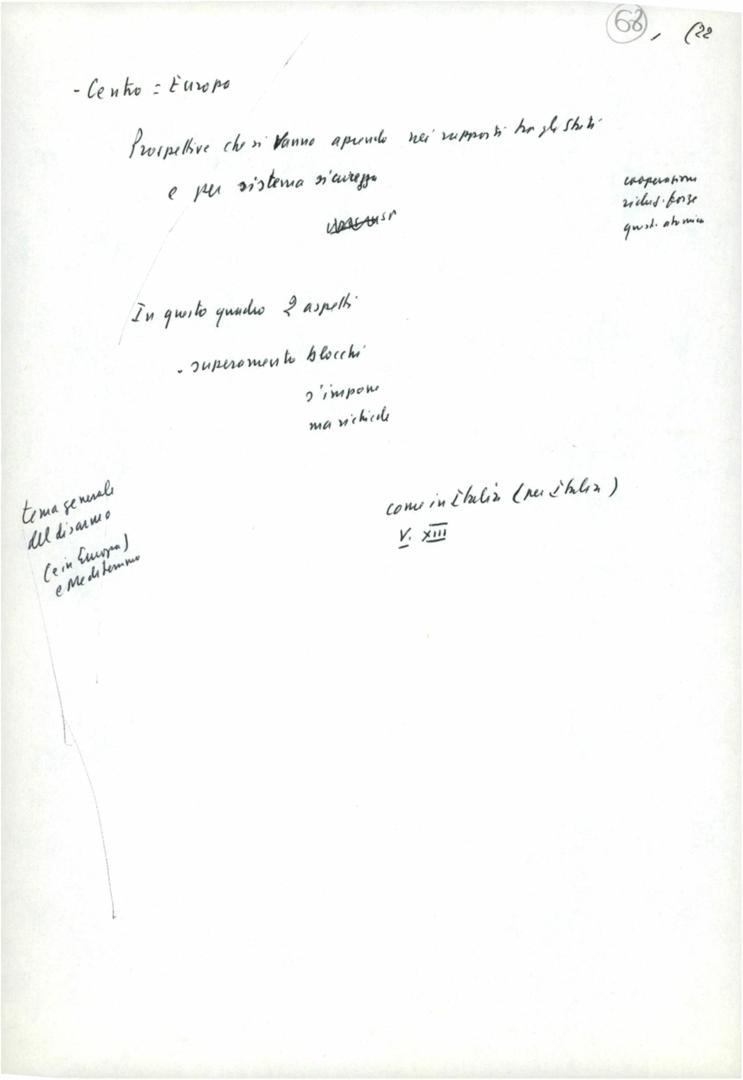 68, (22
- Centro = Europa
Prospettive che si vanno aprendo nei rapporti tra gli Stati
e per sistema sicurezza
cooperazione
riduz. forze
quest. atomica
In questo quadro 2 aspetti
- superamento blocchi
s'impone
ma richiede
tema generale
del disarmo
(e in Europa)
e Mediterraneo
come in Italia (per Italia)
V. XIII